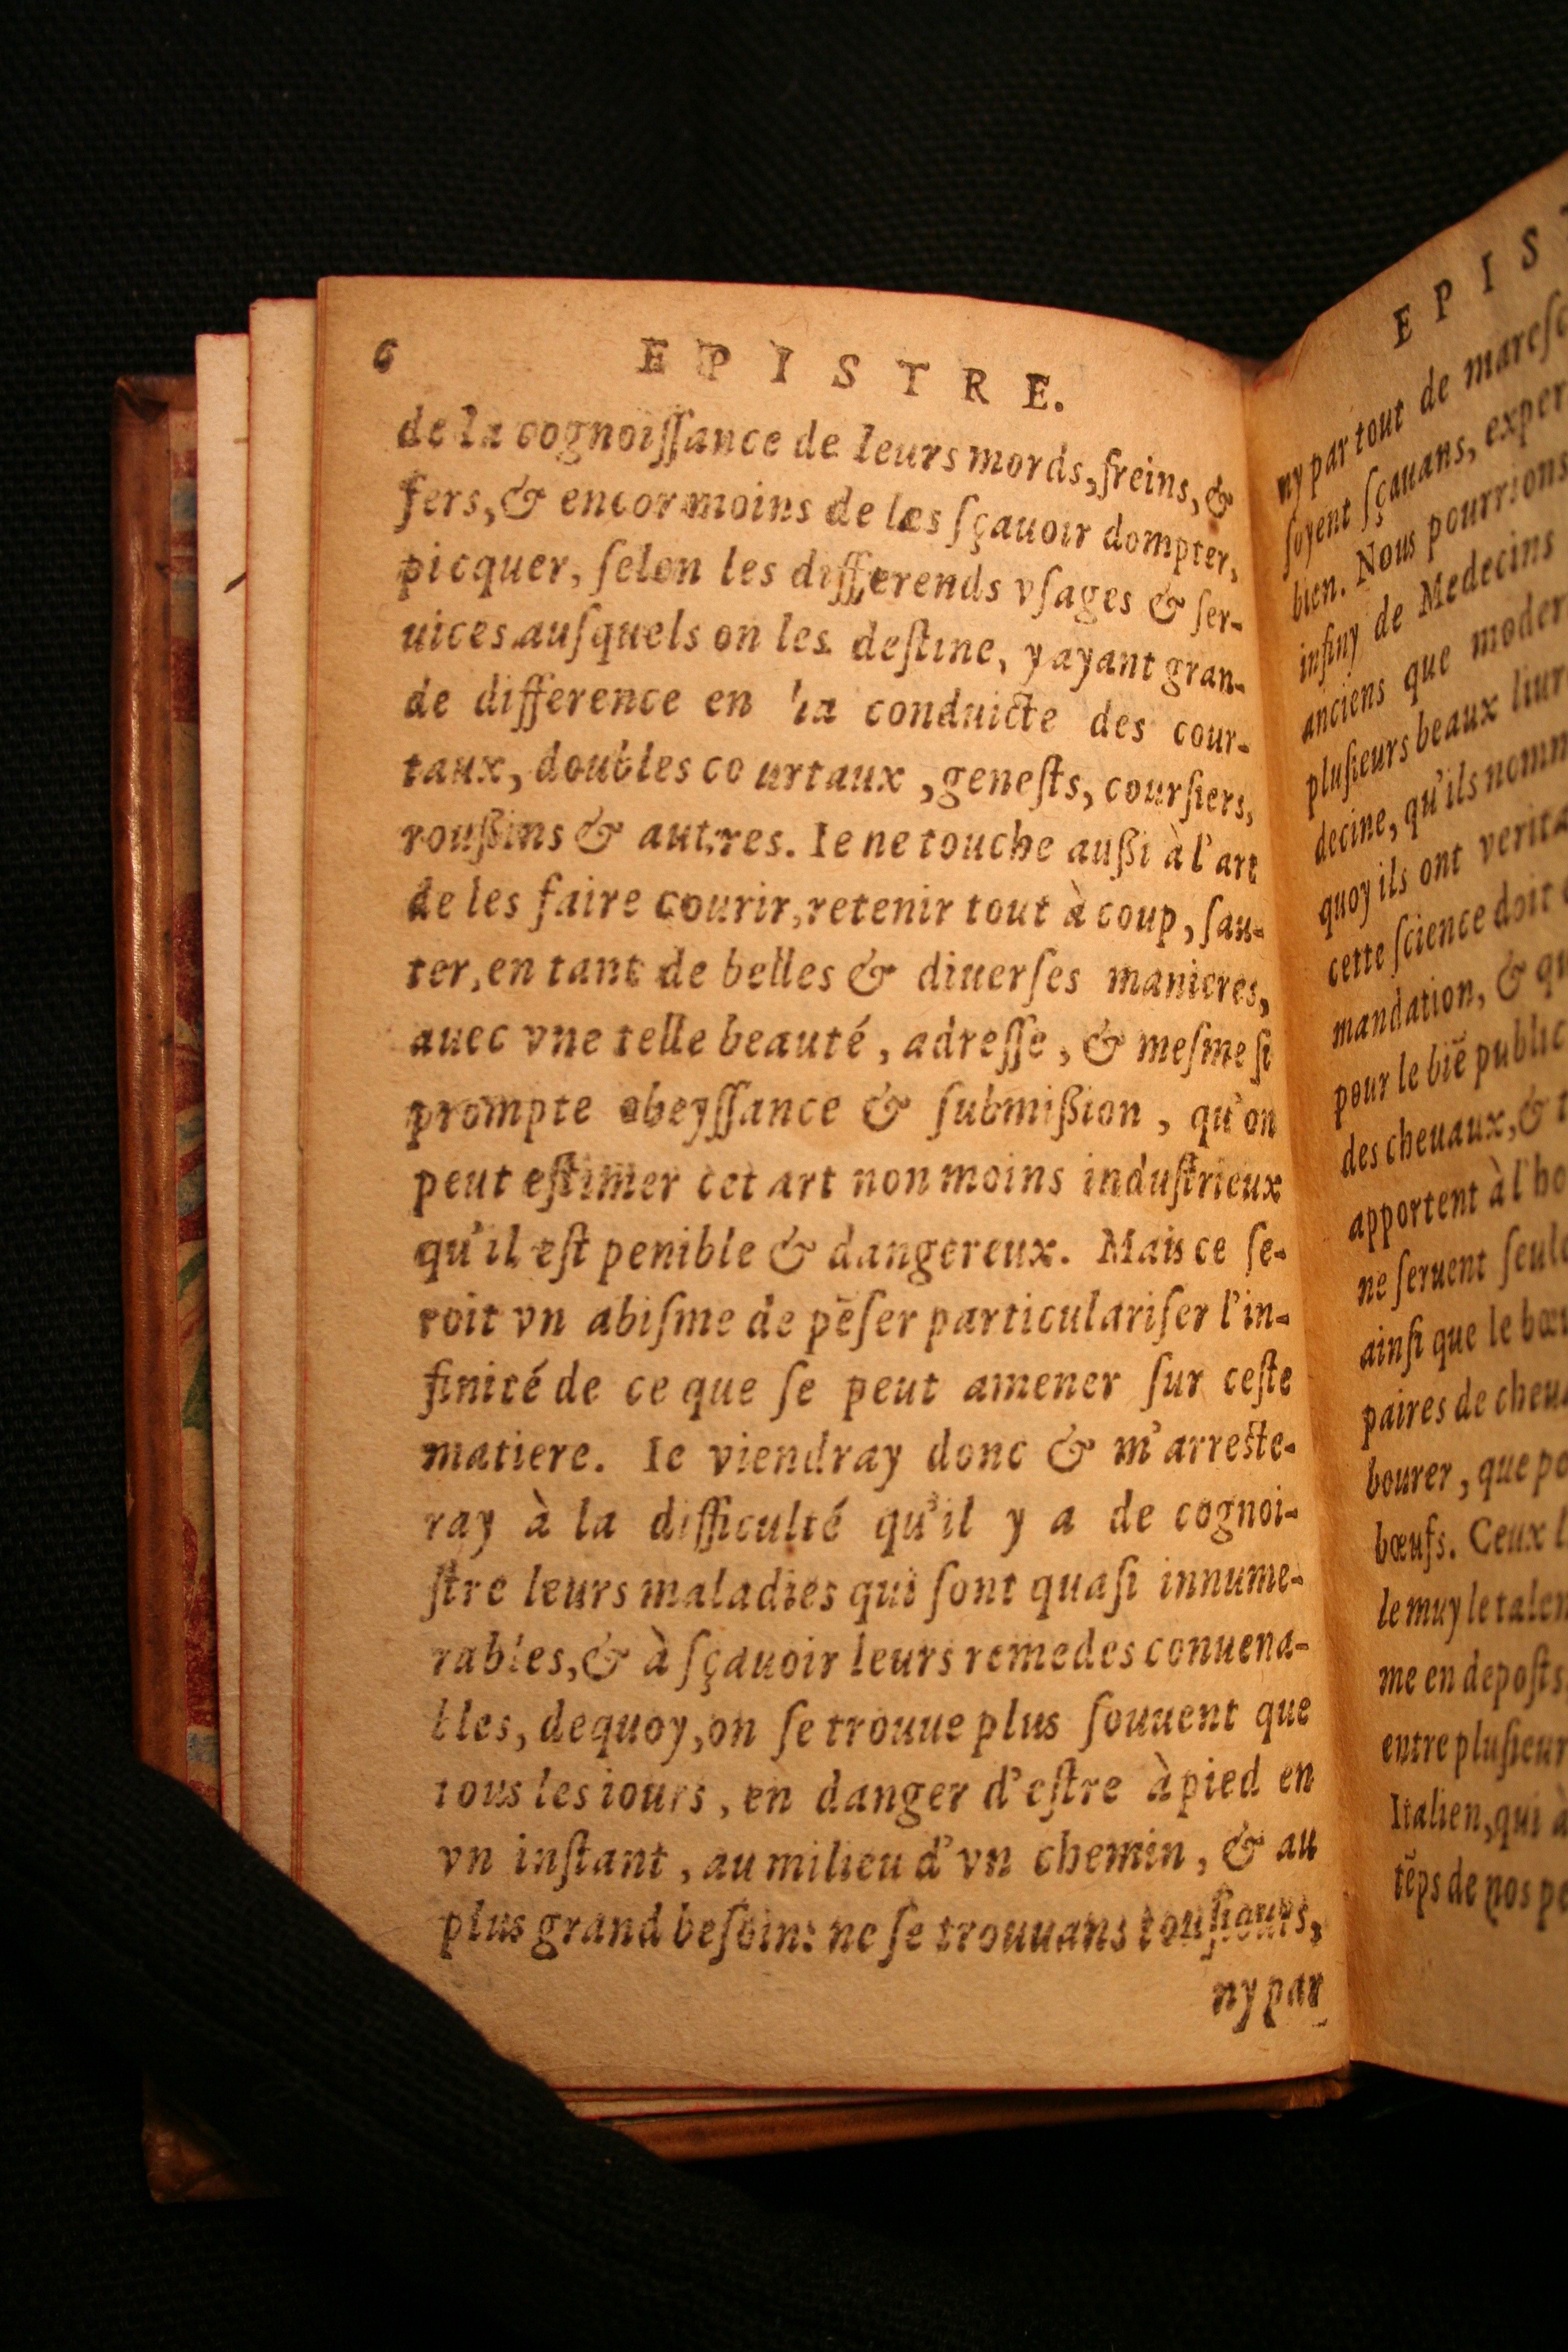 6
EPISTRE.
de la cognoiſſance de leurs mords, freins, &
fers, & encor moins de les ſçauoir dompter,
picquer, ſelon les differends vſages & ſer-
uices auſquels on les deſtine, y ayant gran-
de difference en la conduicte des cour-
taux, doubles courtaux, geneſts, courſiers,
rouſſins & autres. Ie ne touche auſſi à l'art
de les faire courir, retenir tout à coup, ſau-
ter, en tant de belles & diuerſes manieres,
auec vne telle beauté, adreſſe, & meſme ſi
prompte obeyſſance & ſubmiſſion, qu'on
peut eſtimer cet art non moins induſtrieux
qu'il eſt penible & dangereux. Mais ce ſe-
roit vn abiſme de pēſer particulariſer l'in-
finité de ce que ſe peut amener ſur ceſte
matiere. Ie viendray donc & m'arreſte-
ray à la difficulté qu'il y a de cognoi-
ſtre leurs maladies qui ſont quaſi innume-
rables, & à ſçauoir leurs remedes conuena-
bles, dequoy, on ſe trouue plus ſouuent que
tous les iours, en danger d'eſtre à pied en
vn inſtant, au milieu d'vn chemin, & au
plus grand beſoin: ne ſe trouuans touſiours,
ny par
EPIS
ny par tout de
ſoyent ſçauans,
bien. Nous pourrions
infiny de Medecins
anciens que
pluſieurs beaux
decine, qu'ils
quoy ils ont
cette ſcience doit
mandation, &
pour le biē public
des cheuaux, &
apportent à l'
ne ſeruent
ainſi que le
paires de
bourer, que
bœufs. Ceux
le muy le
me en depoſts
entre
Italien, qui
tēps de nos